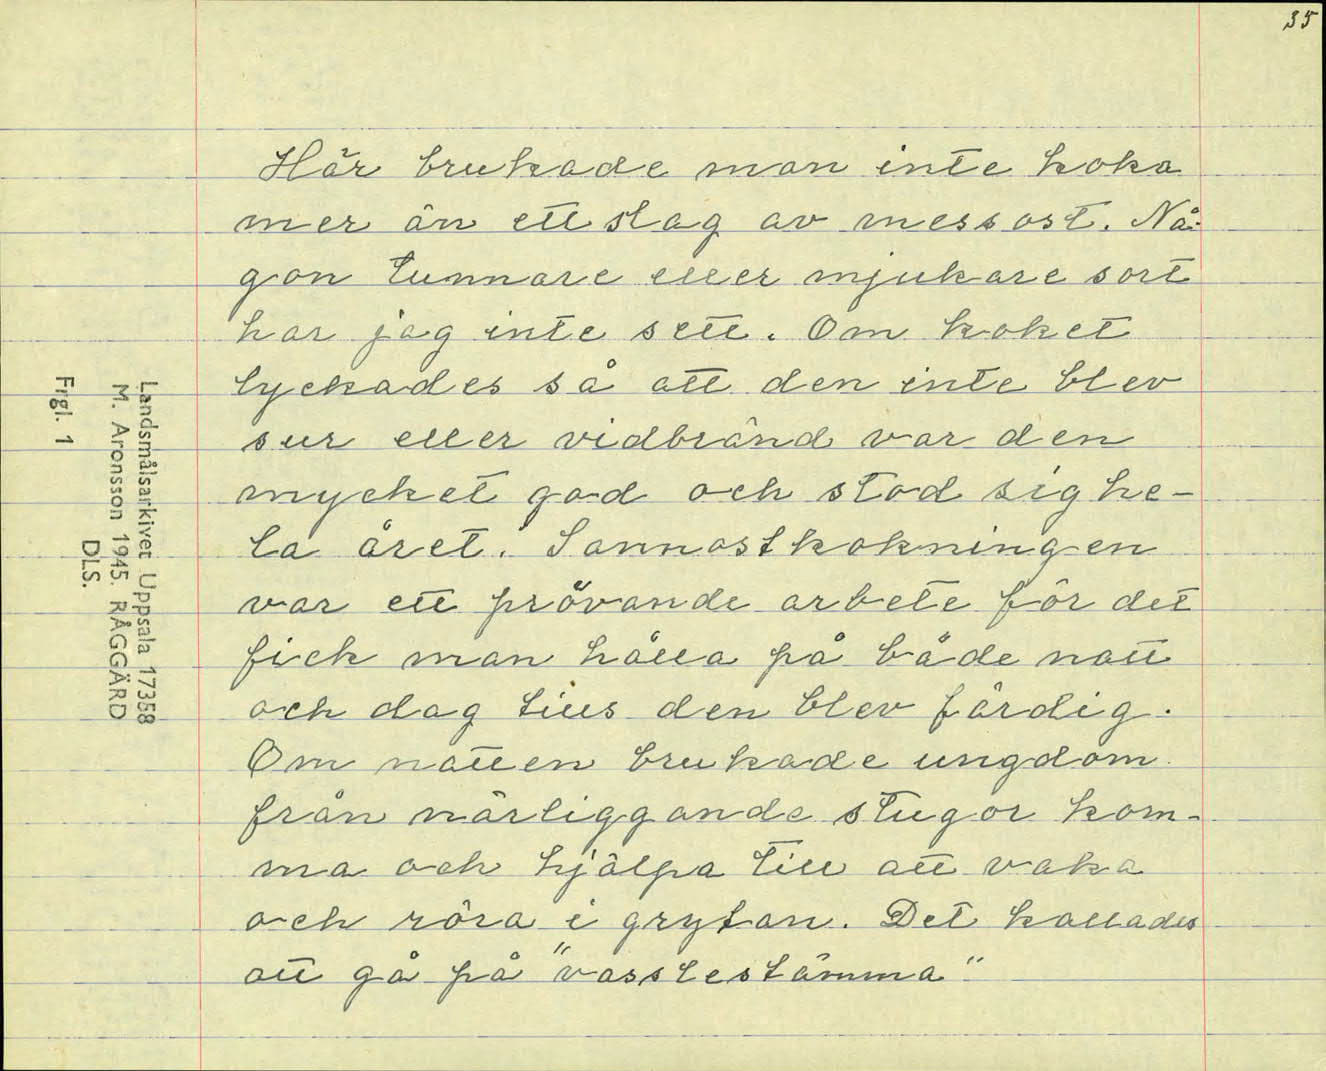 35
Här brukade man inte koka
mer än ett slag av messost. Nå-
gon tunnare eller mjukare sort
har jag inte sett. Om koket
lyckades så att den inte blev
sur eller vidbränd var den
mycket god och stod sig he-
la året. Sannostkokningen
var ett prövande arbete för det
fick man hålla på både natt
och dag tills den blev färdig.
Om natten brukade ungdom
från närliggande stugor kom-
ma och hjälpa till att vaka
och röra i grytan. Det kallades
att gå på "vasslestämma"
Landsmålsarkivet Uppsala 17358
M. Aronsson 1945. RÅGGÄRD
DLS.
Frgl. 1